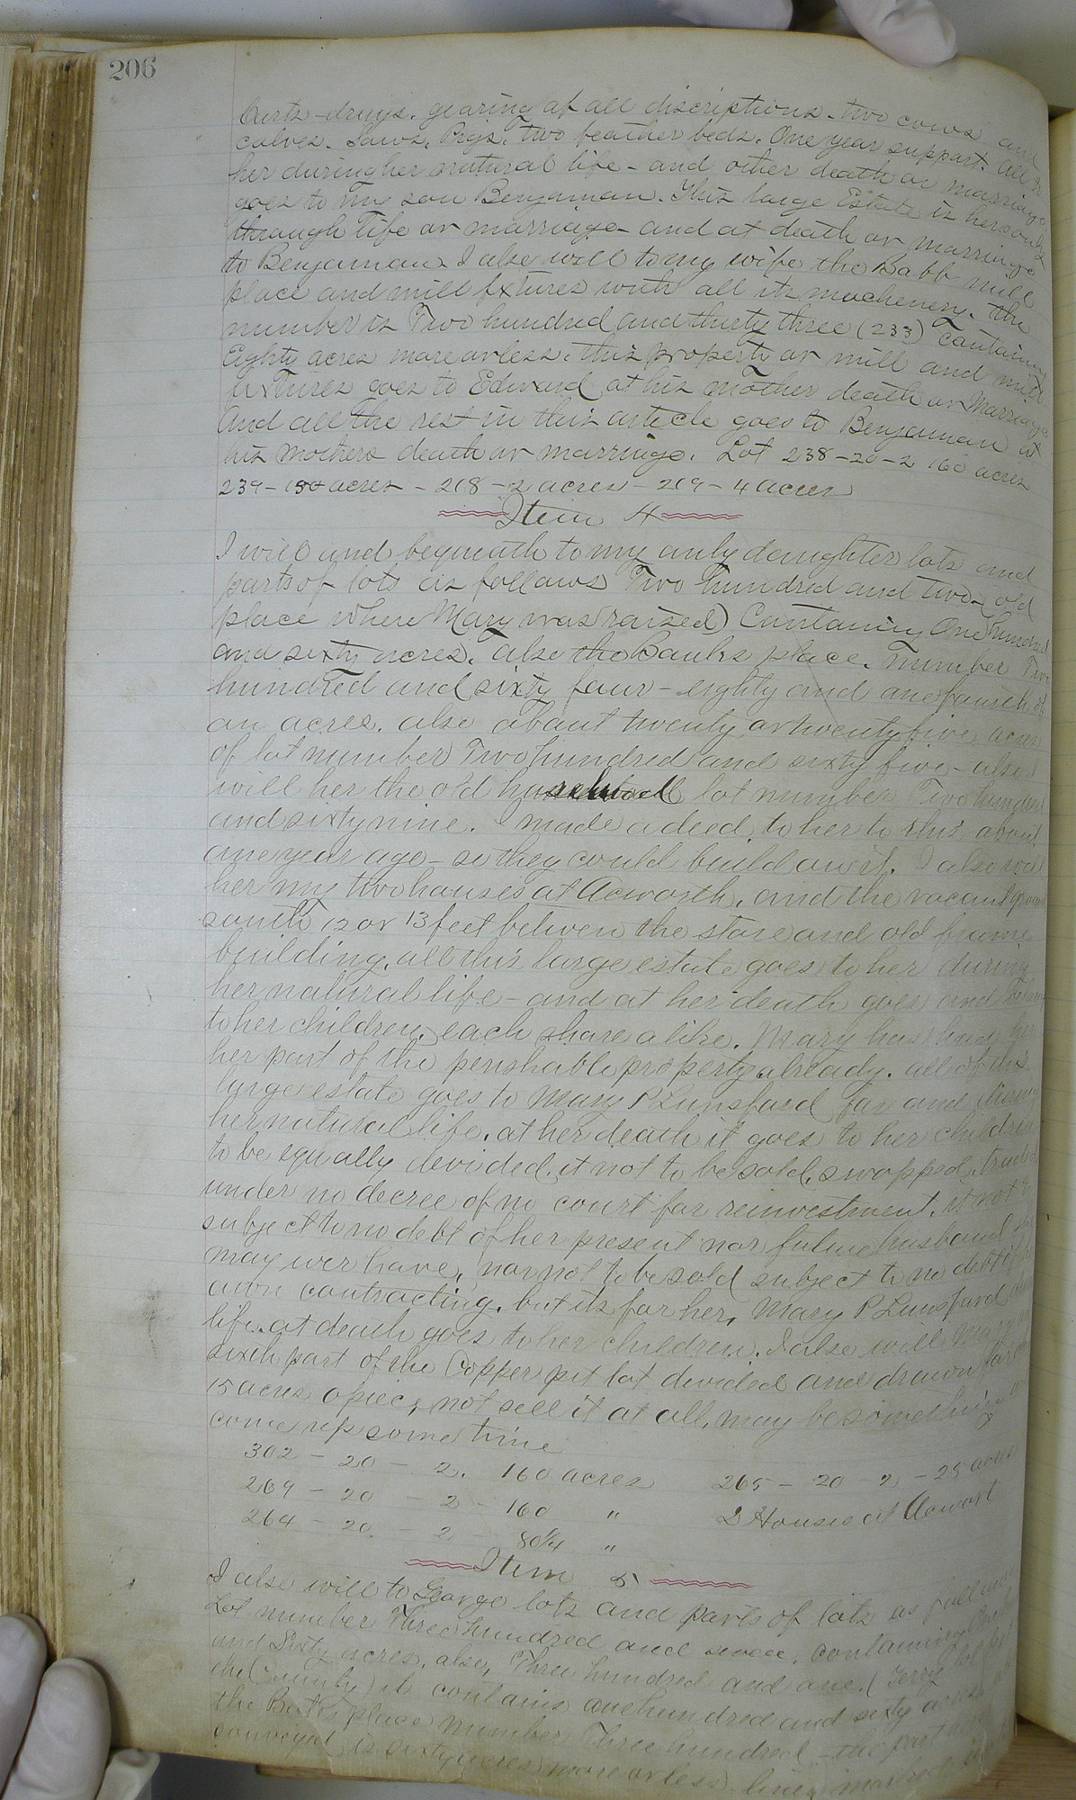 206
drugs. gearing of all discriptions. two cows and
calves. Sows, Pigs, two feather beds. One year support. all to
her during her natural life - and other death or marriage
goes to my son Benjaman. This large Estate is hers only
through life or marriage - and at death or marriage
to Benjaman. I also will to my wife the Babb mill
place and mill fixtures with all its machenery. The
number is Two hundred and thirty three (233) containing
Eighty acres more or less. this property or mill and mill
fixtures goes to Edward at his Mother death or Marriage
And all the rest in this article goes to Benjaman at
his Mothers death or marriage. Lot 238-20-2 160 acres
239 - 150 acres - 218 - 2 acres - 219 - 4 acres
Item 4
I will and bequeath to my only daughter lots and
parts of lots as follows Two hundred and two (old
place where Mary was raized) Containing One hundred
and sixty acres. also the Banks place. number Two
hundred and sixty four - eighty and one fourth of
an acres. also about twenty or twenty five acres
of lot number Two hundred and sixty five - also I
will her the old lot number Two hundred
and sixty nine. I made a deed to her to this about
one year ago - so they could build on it. I also will
her my two houses at Acworth, and the vacant
south 12 or 13 feet between the store and old frame
building. all this large estate goes to her during
her natural life - and at her death goes and
to her children, each share alike. Mary has
her part of the perishable property already. all of this
large estate goes to Mary P Lunsford for and during
her natural life. at her death it goes to her children
to be equally devided. it not to be sold, swopped, traded
under no decree of no court for reinvestment. it not
subject to no debt of her present nor future husband she
may ever have, nor not to be sold subject to no debt of her
own contracting. but its for her, Mary P Lunsford
life. at death goes to her children. I also will Mary
sixth part of the Copper pit lot devided and drawn for
15 acres apiece, not sell it at all, may be something
come up some time
302 - 20 - 2. 160 acres 265 - 20 2 - 25 acres
269 - 20 - 2 - 160 " 2 Houses at Acwort
264 - 20. - 2 - 80 1/4 "
Item 5
I also will to George lots and parts of lots as follows
Lot number Three hundred and seven, containing
and sixty acres. also, Three hundred and one. (
the County) it contains one hundred and sixty acres
the place number Three hundred - the part
conveyed is sixty acres more or less - lines marked